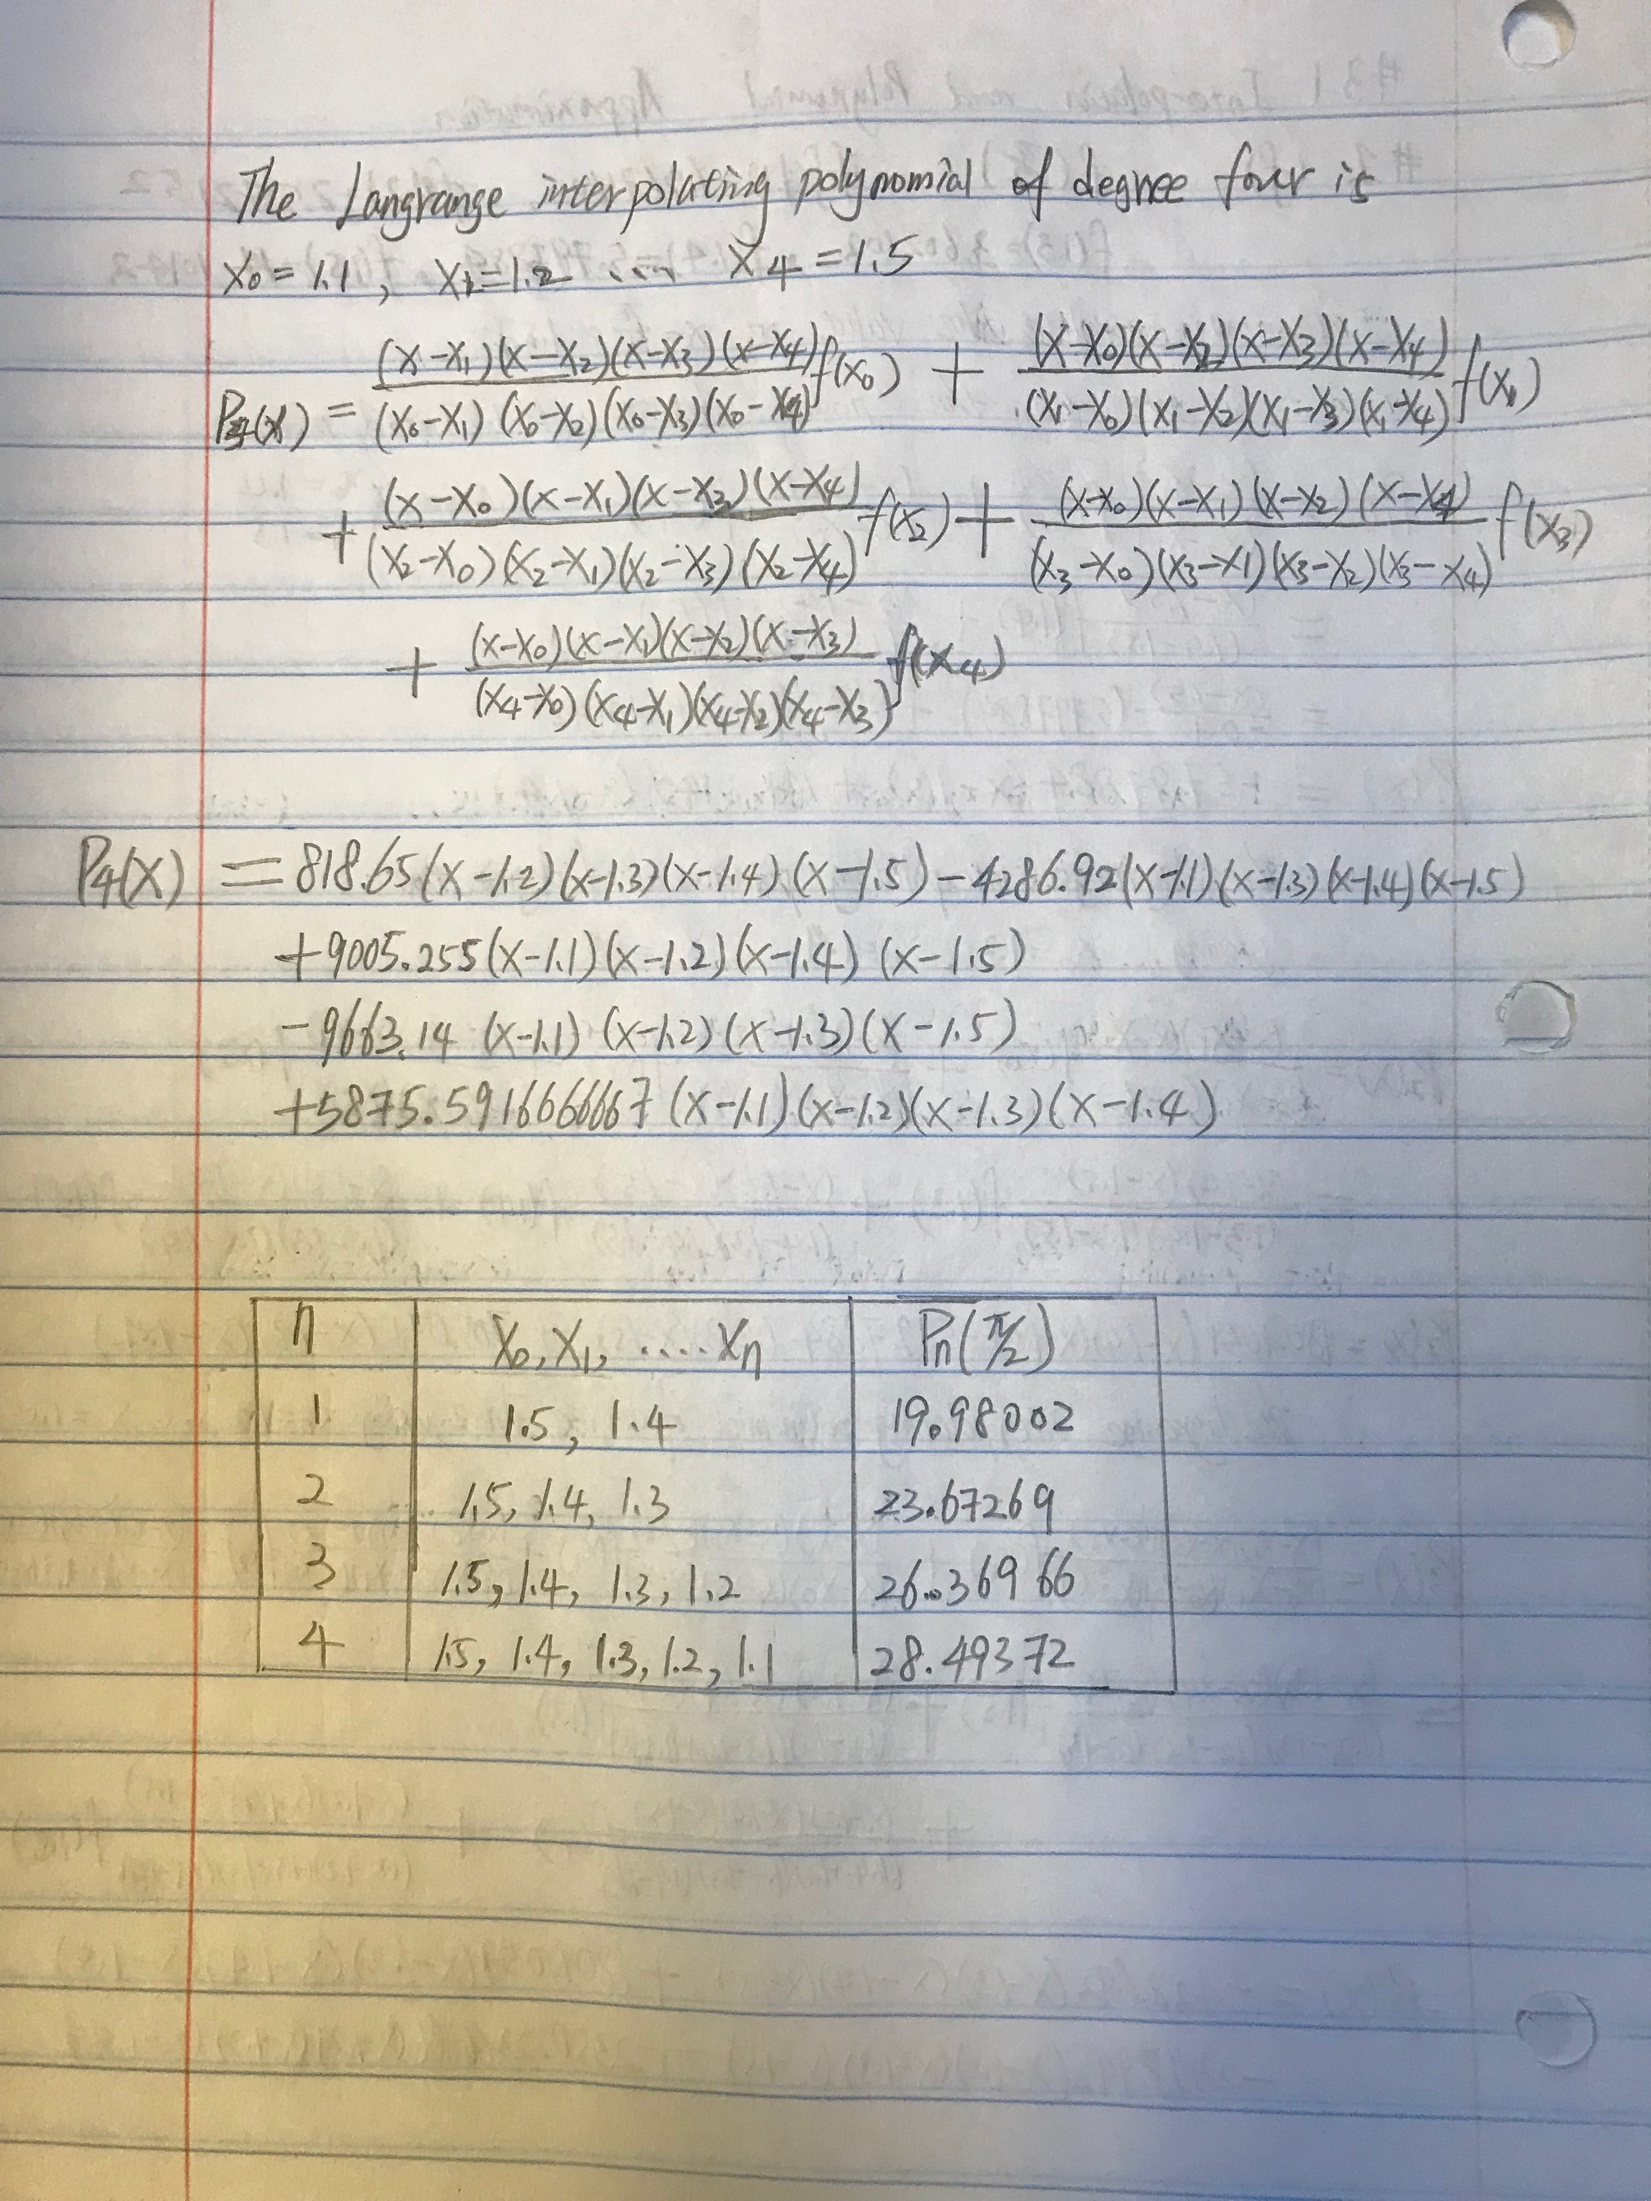 The Langrange interpolating polynomial of degree four is
x₀ = 1.1, x₁ = 1.2 ... x₄ = 1.5
P₄(x) = (x-x₁)(x-x₂)(x-x₃)(x-x₄)/(x₀-x₁)(x₀-x₂)(x₀-x₃)(x₀-x₄) f(x₀) + (x-x₀)(x-x₂)(x-x₃)(x-x₄)/(x₁-x₀)(x₁-x₂)(x₁-x₃)(x₁-x₄) f(x₁)
+ (x-x₀)(x-x₁)(x-x₃)(x-x₄)/(x₂-x₀)(x₂-x₁)(x₂-x₃)(x₂-x₄) f(x₂) + (x-x₀)(x-x₁)(x-x₂)(x-x₄)/(x₃-x₀)(x₃-x1)(x₃-x₂)(x₃-x₄) f(x₃)
+ (x-x₀)(x-x₁)(x-x₂)(x-x₃)/(x₄-x₀)(x₄-x₁)(x₄-x₂)(x₄-x₃) f(x₄)
P₄(x) = 818.65(x-1.2)(x-1.3)(x-1.4)(x-1.5) - 4286.92(x-1.1)(x-1.3)(x-1.4)(x-1.5)
+9005.255(x-1.1)(x-1.2)(x-1.4)(x-1.5)
-9663.14 (x-1.1)(x-1.2)(x-1.3)(x-1.5)
+5875.591666667 (x-1.1)(x-1.2)(x-1.3)(x-1.4)
n x₀, x₁, .... xₙ Pₙ(π/2)
1 1.5, 1.4 19.98002
2 1.5, 1.4, 1.3 23.67269
3 1.5, 1.4, 1.3, 1.2 26.36966
4 1.5, 1.4, 1.3, 1.2, 1.1 28.49372